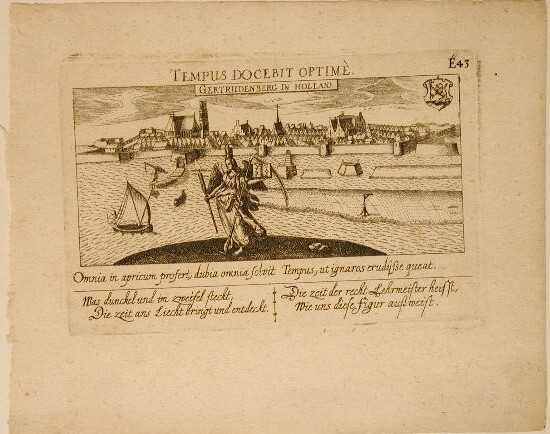 TEMPUS DOCEBIT OPTIMÈ.
É43
GERTRUDENBERG IN HOLLAND
Omnia in apricum profert, dubia omnia solvit Tempus, ut ignaros erudijsse queat.
Was dunckel und im zweifel steckt,
Die zeit ans Liecht bringt und entdeckt.
Die zeit der recht Lehrmeister heisst,
Wie uns diese figur außweist.